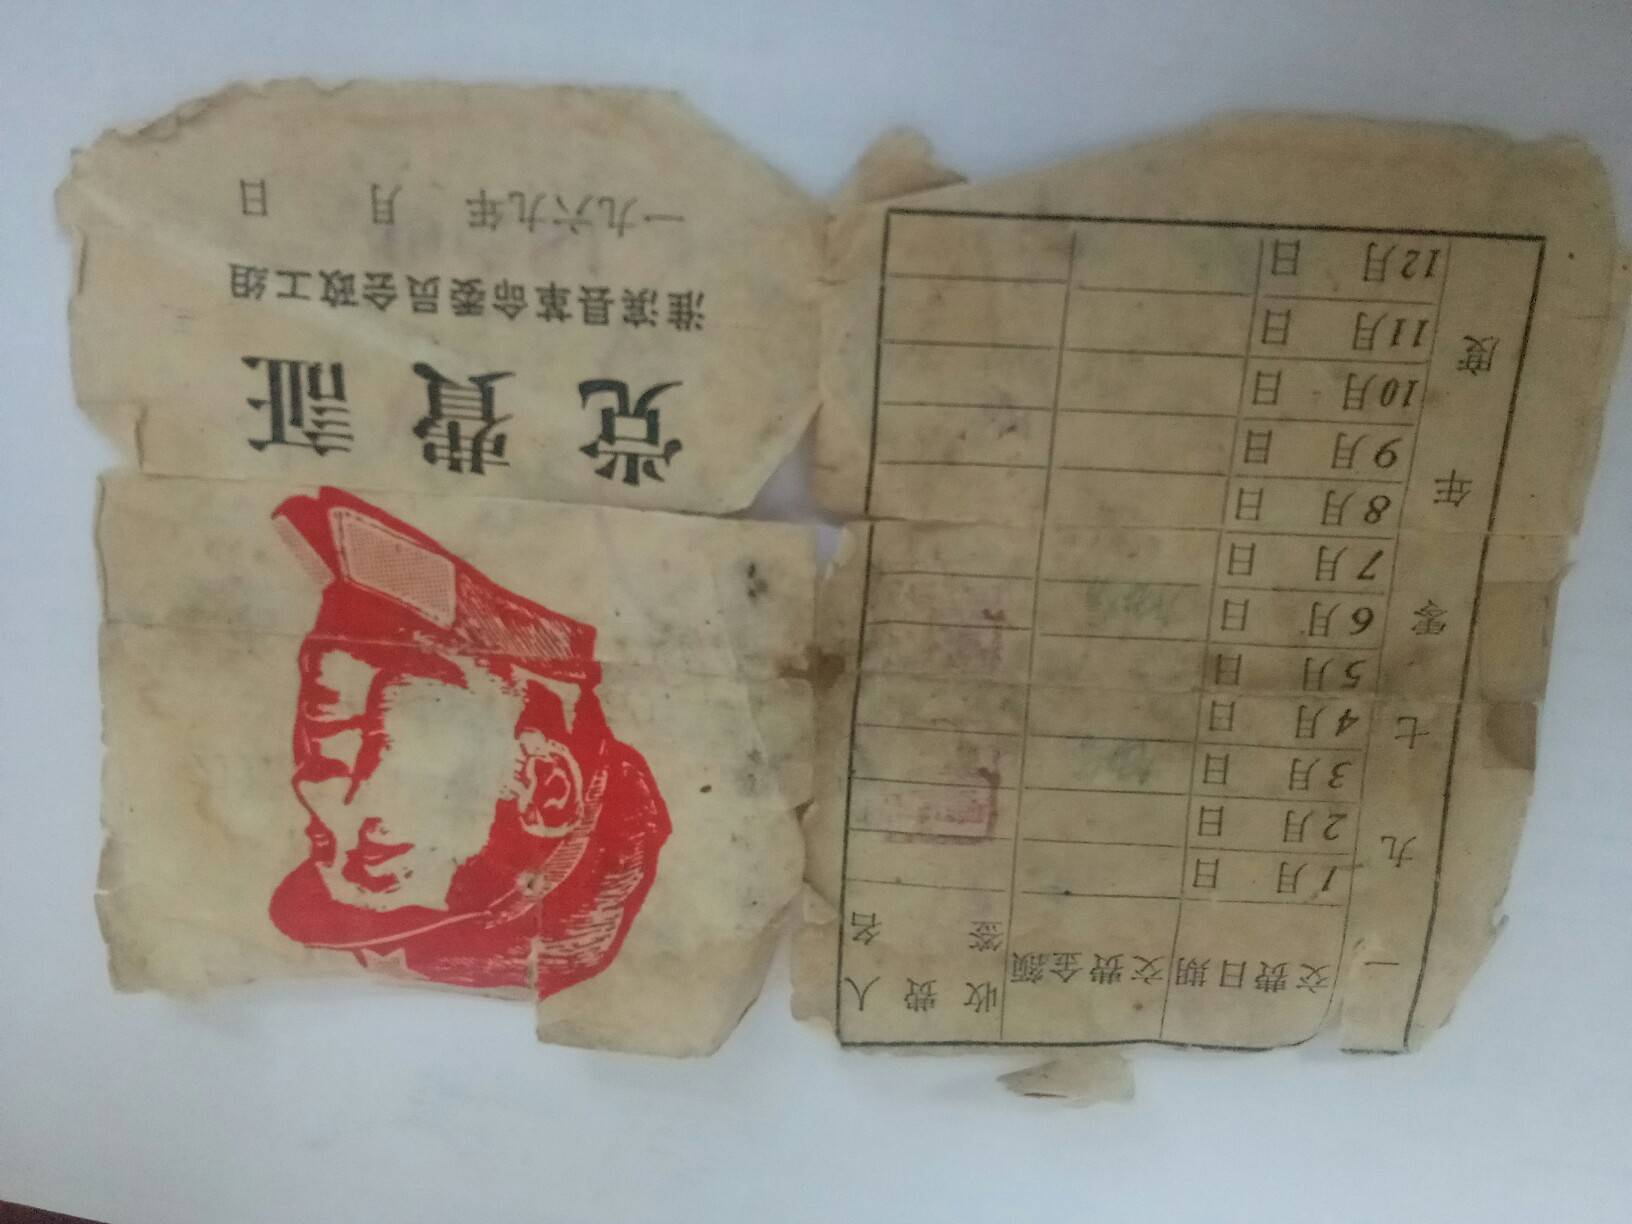 党费证
淮滨县革命委员会政工组
一九六九年 月 日
一九七零年度
交费日期 交费金额 收费人签名
1月 日
2月 日
3月 日
4月 日
5月 日
6月 日
7月 日
8月 日
9月 日
10月 日
11月 日
12月 日